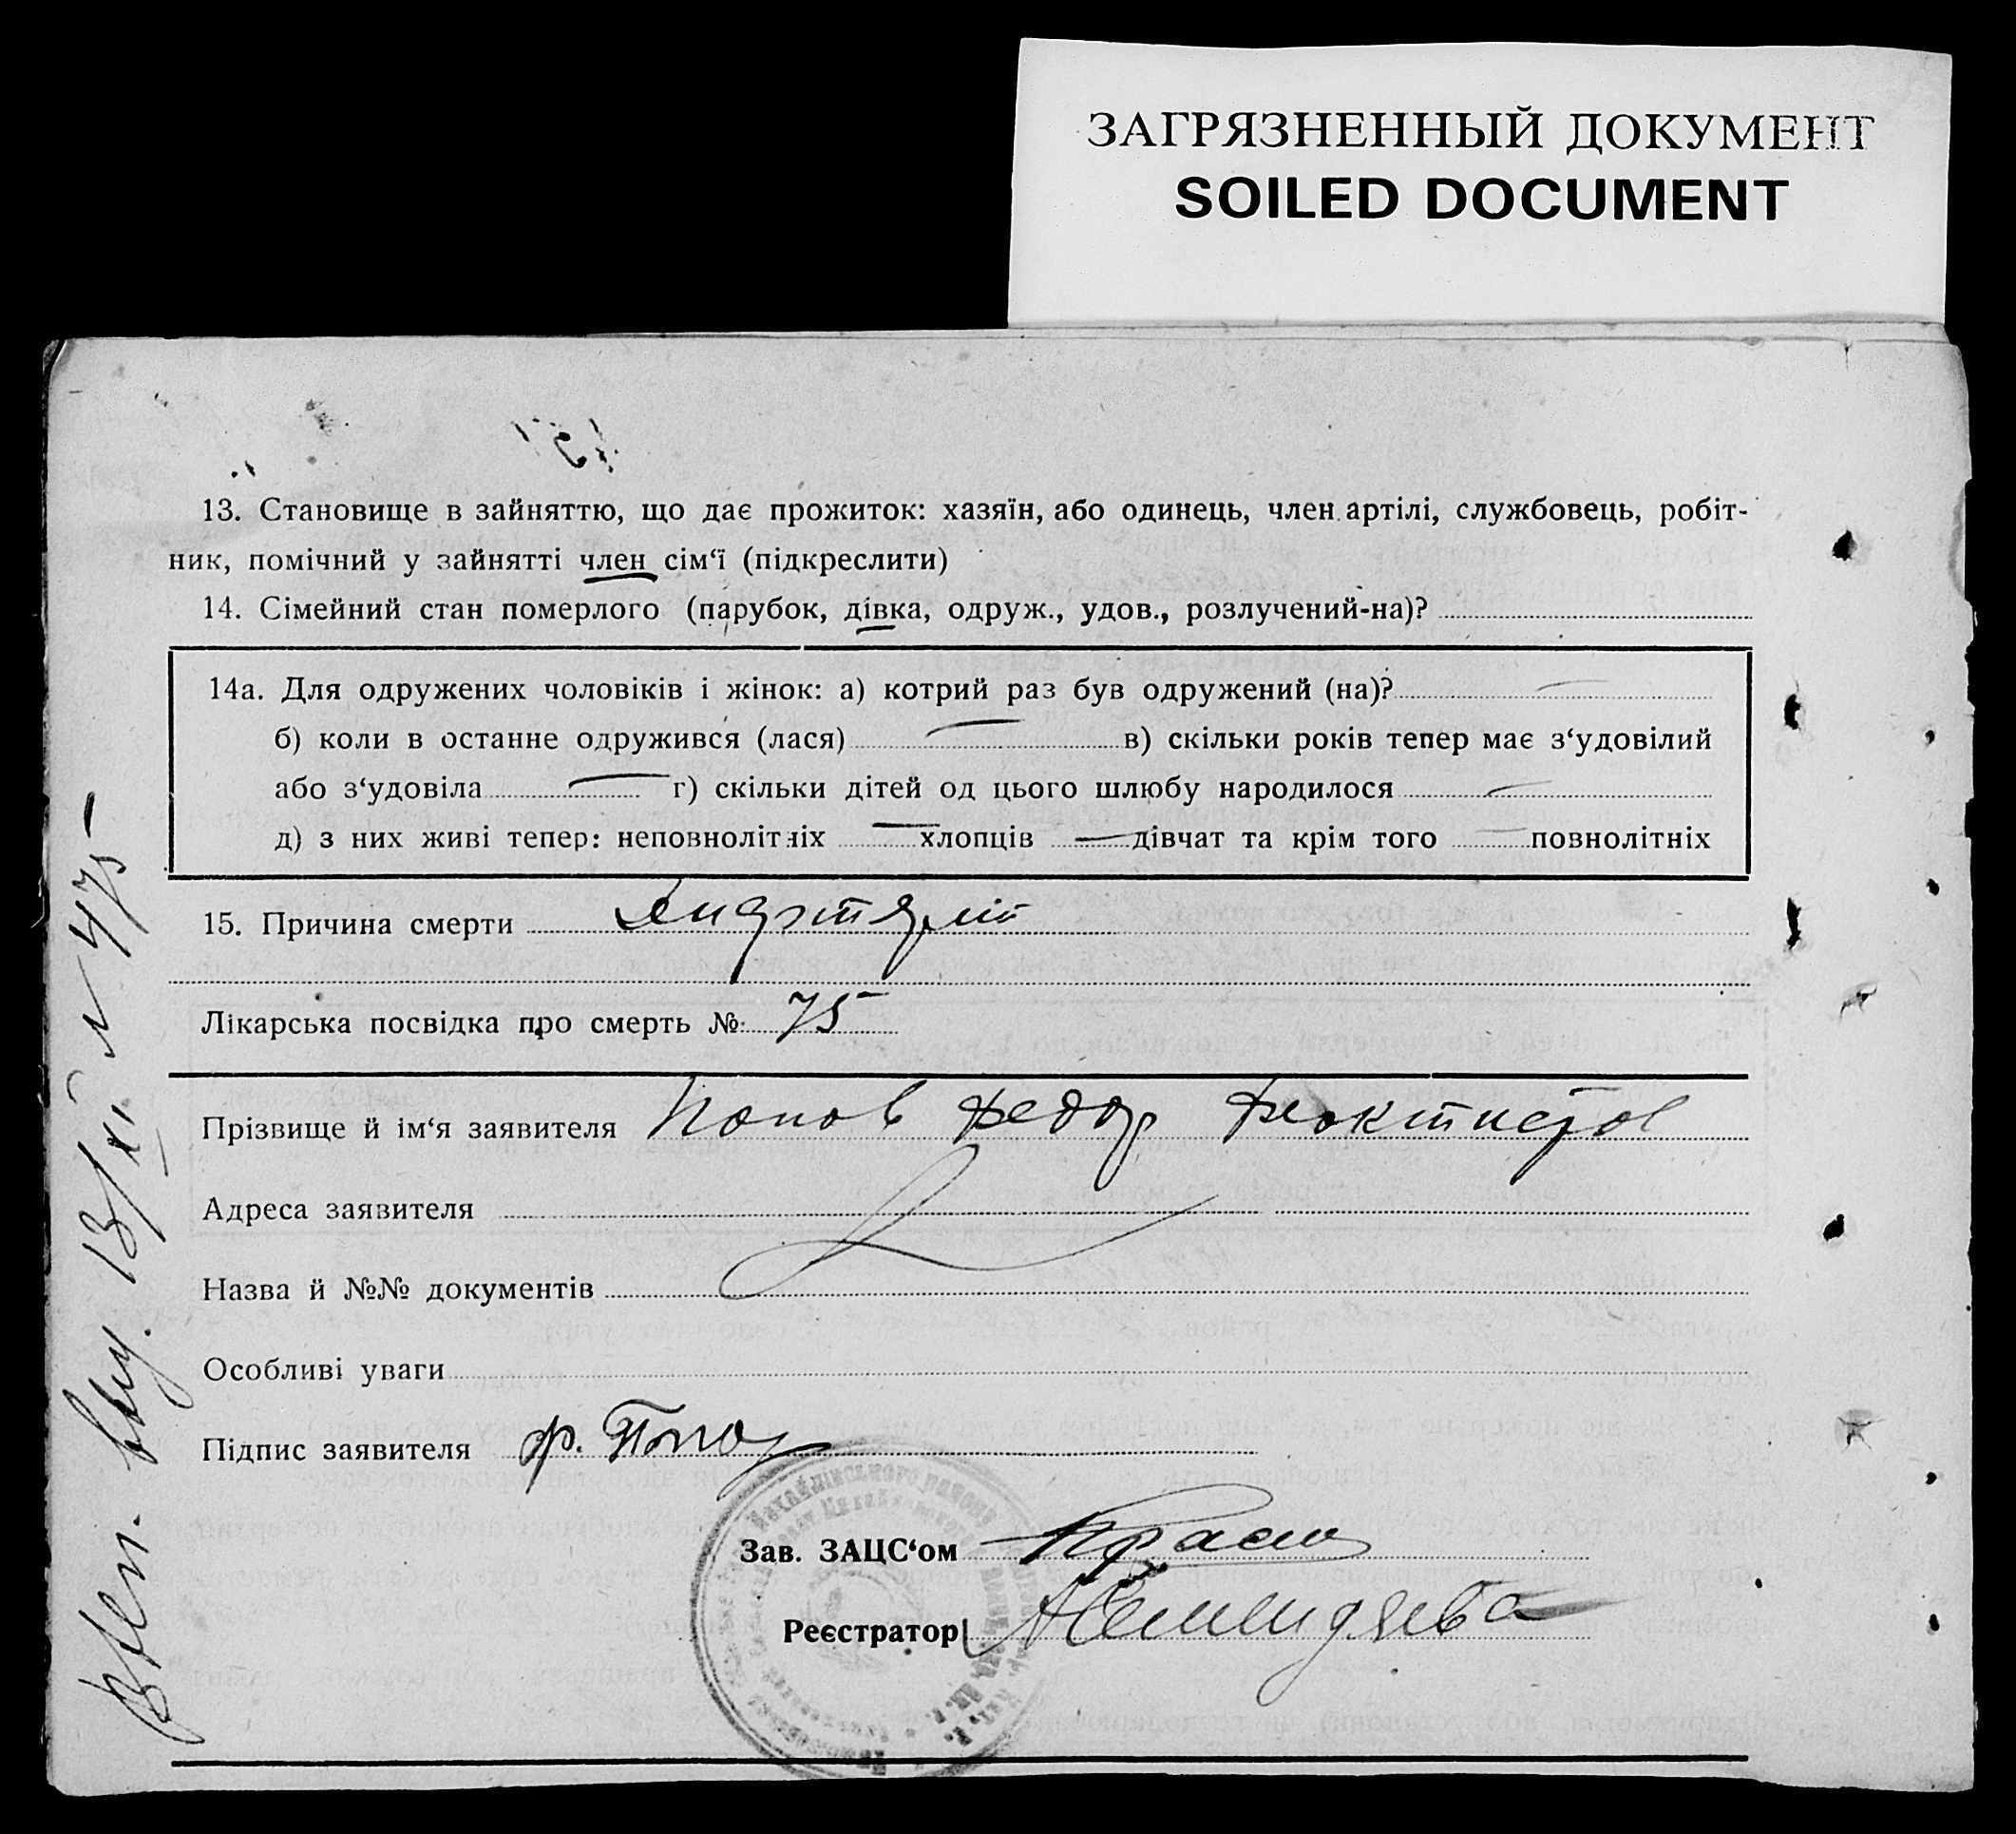 ЗАГРЯЗНЕННЫЙ ДОКУМЕНТ
SOILED DOCUMENT
13. Становище в зайняттю, що дає прожиток: хазяїн, або одинець, член артілі, службовець, робіт-
ник, помічний у зайнятті член сім‘ї (підкреслити)
14. Сімейний стан померлого (парубок, дівка, одруж., удов., розлучений-на)?
14а. Для одружених чоловіків і жінок: а) котрий раз був одружений (на)? —
б) коли в останне одружився (лася) — в) скільки років тепер має з‘удовілий
або з‘удовіла — г) скільки дітей од цього шлюбу народилося —
д) з них живі тепер: неповнолітніх — хлопців — дівчат та крім того — повнолітніх
15. Причина смерти
Лікарська посвідка про смерть № 75
Прізвище й ім‘я заявителя Попов Федор
Адреса заявителя
Назва й №№ документів
Особливі уваги
Підпис заявителя Ф. Попов
Зав. ЗАЦС‘ом
Реєстратор
13/XI N 475